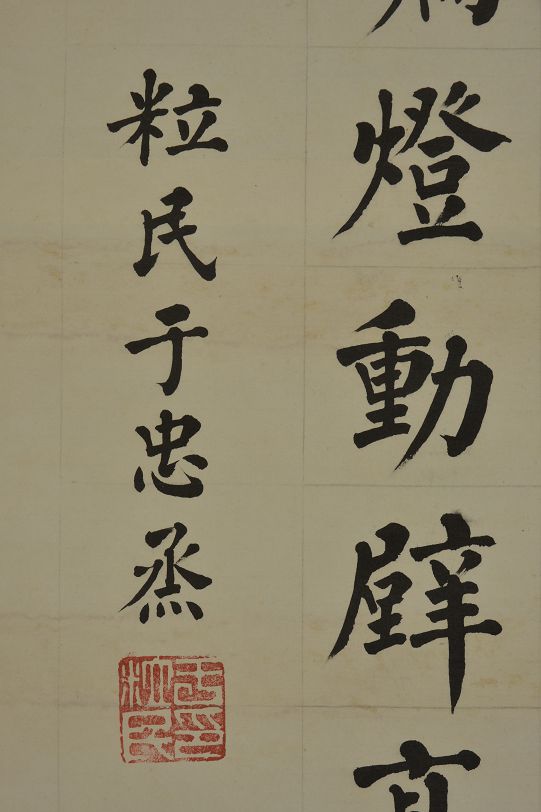 燈動壁
粒民于忠烝
粒民